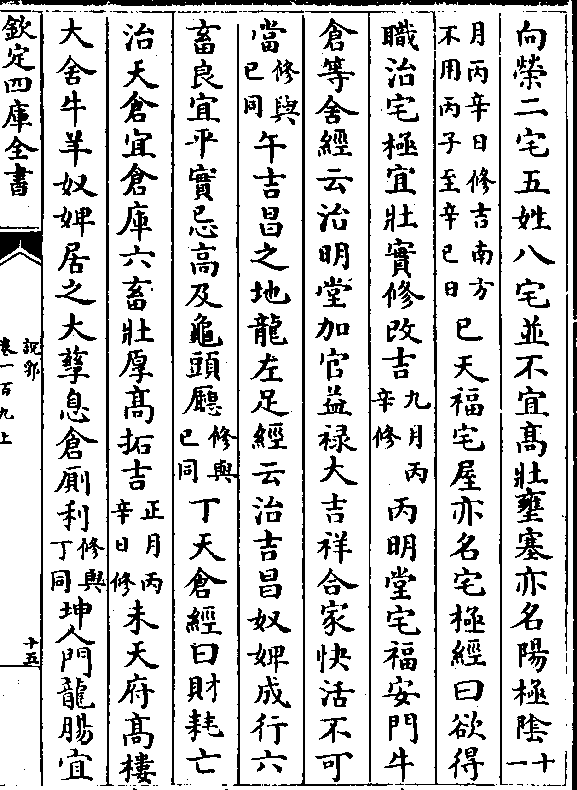 向榮二宅五姓八宅並不宜高壯壅塞亦名陽極陰十一
月丙辛日修吉南方不用丙子至辛巳日巳天福宅屋亦名宅極經曰欲得
職治宅極宜壯實修改吉九月丙辛修丙明堂宅福安門牛
倉等舍經云治明堂加官益祿大吉祥合家快活不可
當修與巳同午吉昌之地龍左足經云治吉昌奴婢成行六
畜良宜平實忌高及龜頭廳修與巳同丁天倉經曰財耗亡
治天倉宜倉庫六畜壯厚高拓吉正月丙辛日修未天府高樓
大舍牛羊奴婢居之大孳息倉厠利修與丁同坤人門龍腸宜
欽定四庫全書
說郛
卷一百九上
十五